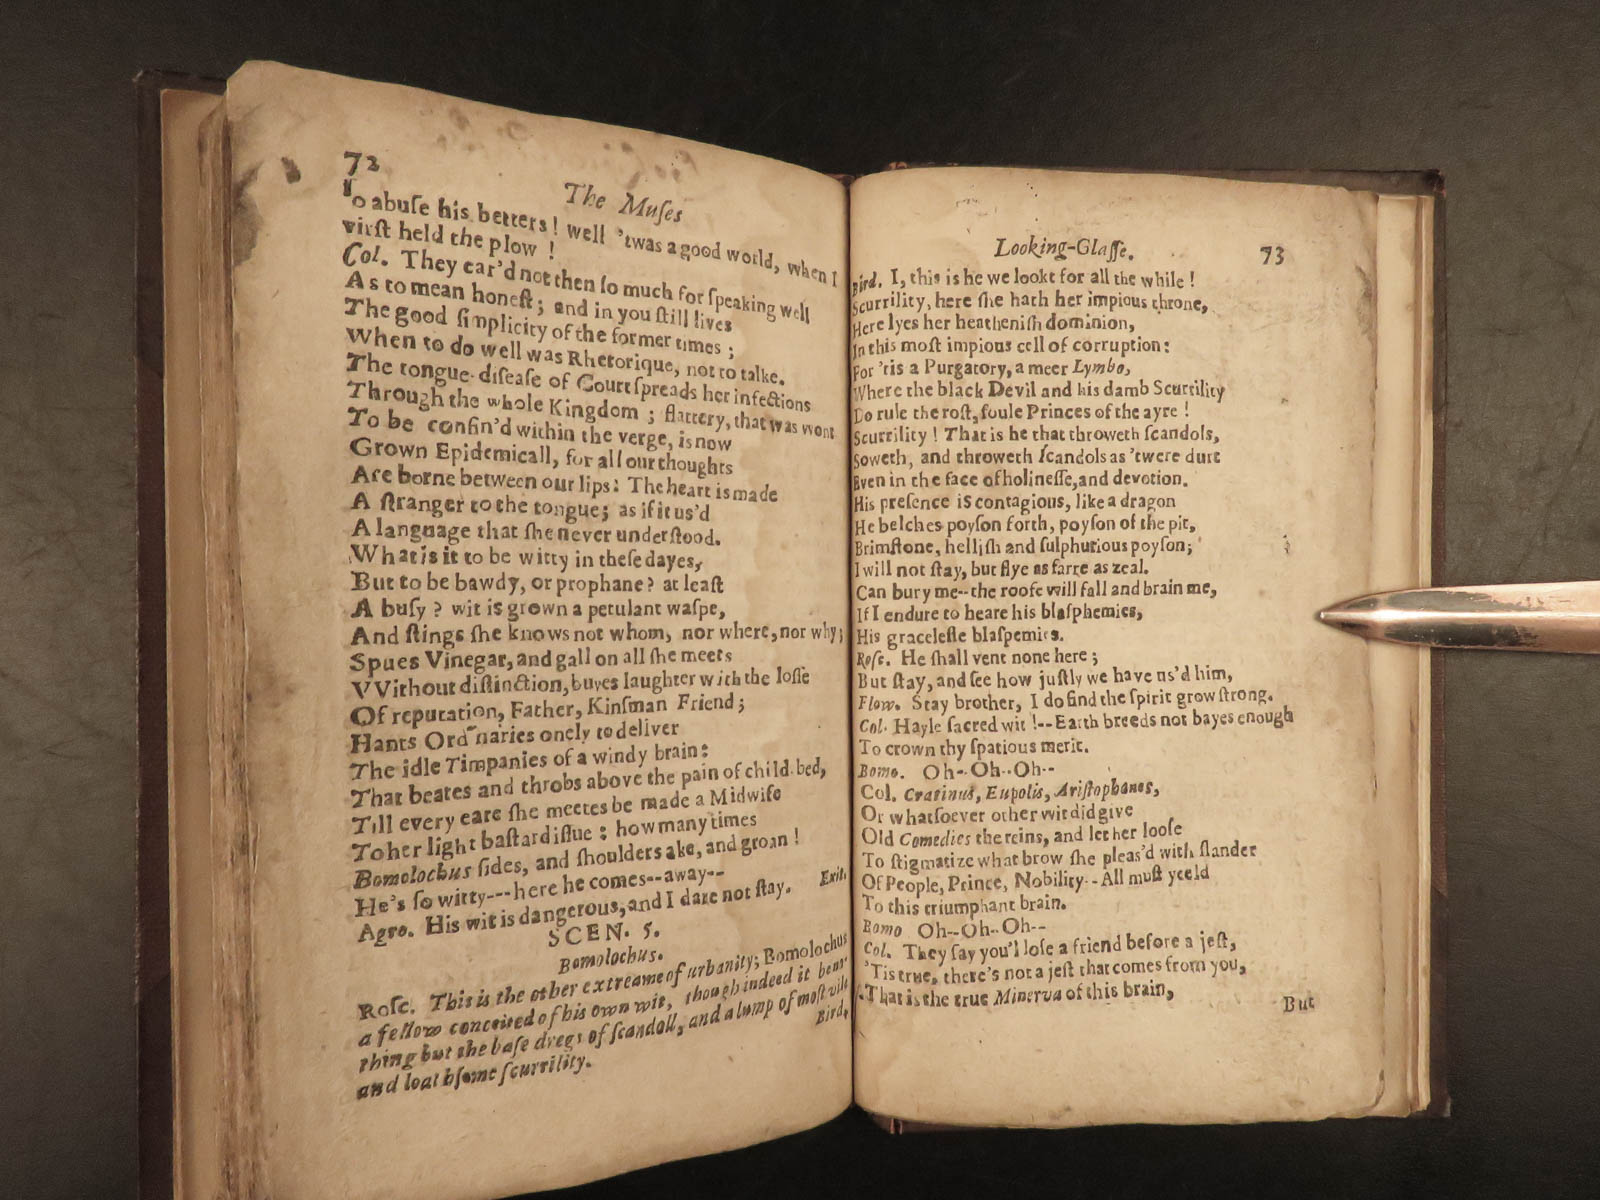 72
The Muſes
To abuſe his betters! Well 'twas a good world, when I
virſt held the plow!
Col. They car'd not then ſo much for ſpeaking well
As to mean honeſt; and in you ſtill lives
The good ſimplicity of the former times;
When to do well was Rhetorique, not to talke.
The tongue-diſeaſe of Court ſpreads her infections
Through the whole Kingdom; flattery, that was wont
To be confin'd within the verge, is now
Grown Epidemicall, for all our thoughts
Are borne between our lips: The heart is made
A ſtranger to the tongue; as if it us'd
A language that ſhe never underſtood.
What is it to be witty in theſe dayes,
But to be bawdy, or prophane? at leaſt
A buſy? wit is grown a petulant waſpe,
And ſtings ſhe knows not whom, nor where, nor why;
Spues Vinegar, and gall on all ſhe meets
VVithout diſtinction, buyes laughter with the loſſe
Of reputation, Father, Kinſman Friend;
Hants Ord naries onely to deliver
The idle Timpanies of a windy brain:
That beates and throbs above the pain of child-bed,
Till every eare ſhe meetes be made a Midwife
To her light baſtard iſſue: how many times
Bomolochus ſides, and ſhoulders ake, and groan!
He's ſo witty---here he comes--away--
Agro. His wit is dangerous, and I dare not ſtay. Exit.
SCEN. 5.
Bomolochus.
Roſc. This is the other extreame of urbanity; Bomolochus
a fellow conceited of his own wit, though indeed it bear
thing but the baſe dregs of ſcandoll, and a lump of moſt vile
and loathſome ſcurrility.
Bird.
Looking-Glaſſe.
73
Bird. I, this is he we lookt for all the while!
Scurrility, here ſhe hath her impious throne,
Here lyes her heatheniſh dominion,
In this moſt impious cell of corruption:
For 'tis a Purgatory, a meer Lymbo,
Where the black Devil and his damb Scurrility
Do rule the roſt, foule Princes of the ayre!
Scurrility! That is he that throweth ſcandols,
Soweth, and throweth ſcandols as 'twere durt
Even in the face of holineſſe, and devotion.
His preſence is contagious, like a dragon
He belches poyſon forth, poyſon of the pit,
Brimſtone, helliſh and ſulphurious poyſon;
I will not ſtay, but flye as farre as zeal.
Can bury me--the roofe will fall and brain me,
If I endure to heare his blaſphemies,
His graceleſſe blaſpemies.
Roſc. He ſhall vent none here;
But ſtay, and ſee how juſtly we have us'd him,
Flow. Stay brother, I do find the ſpirit grow ſtrong.
Col. Hayle ſacred wit!--Earth breeds not bayes enough
To crown thy ſpatious merit.
Bomo. Oh--Oh--Oh--
Col. Cratinus, Eupolis, Ariſtophanes,
Or whatſoever other wit did give
Old Comedies the reins, and let her looſe
To ſtigmatize what brow ſhe pleas'd with ſlander
Of People, Prince, Nobility--All muſt yeeld
To this triumphant brain.
Bomo Oh--Oh--Oh--
Col. They ſay you'l loſe a friend before a jeſt,
'Tis true, there's not a jeſt that comes from you,
That is the true Minerva of this brain,
But